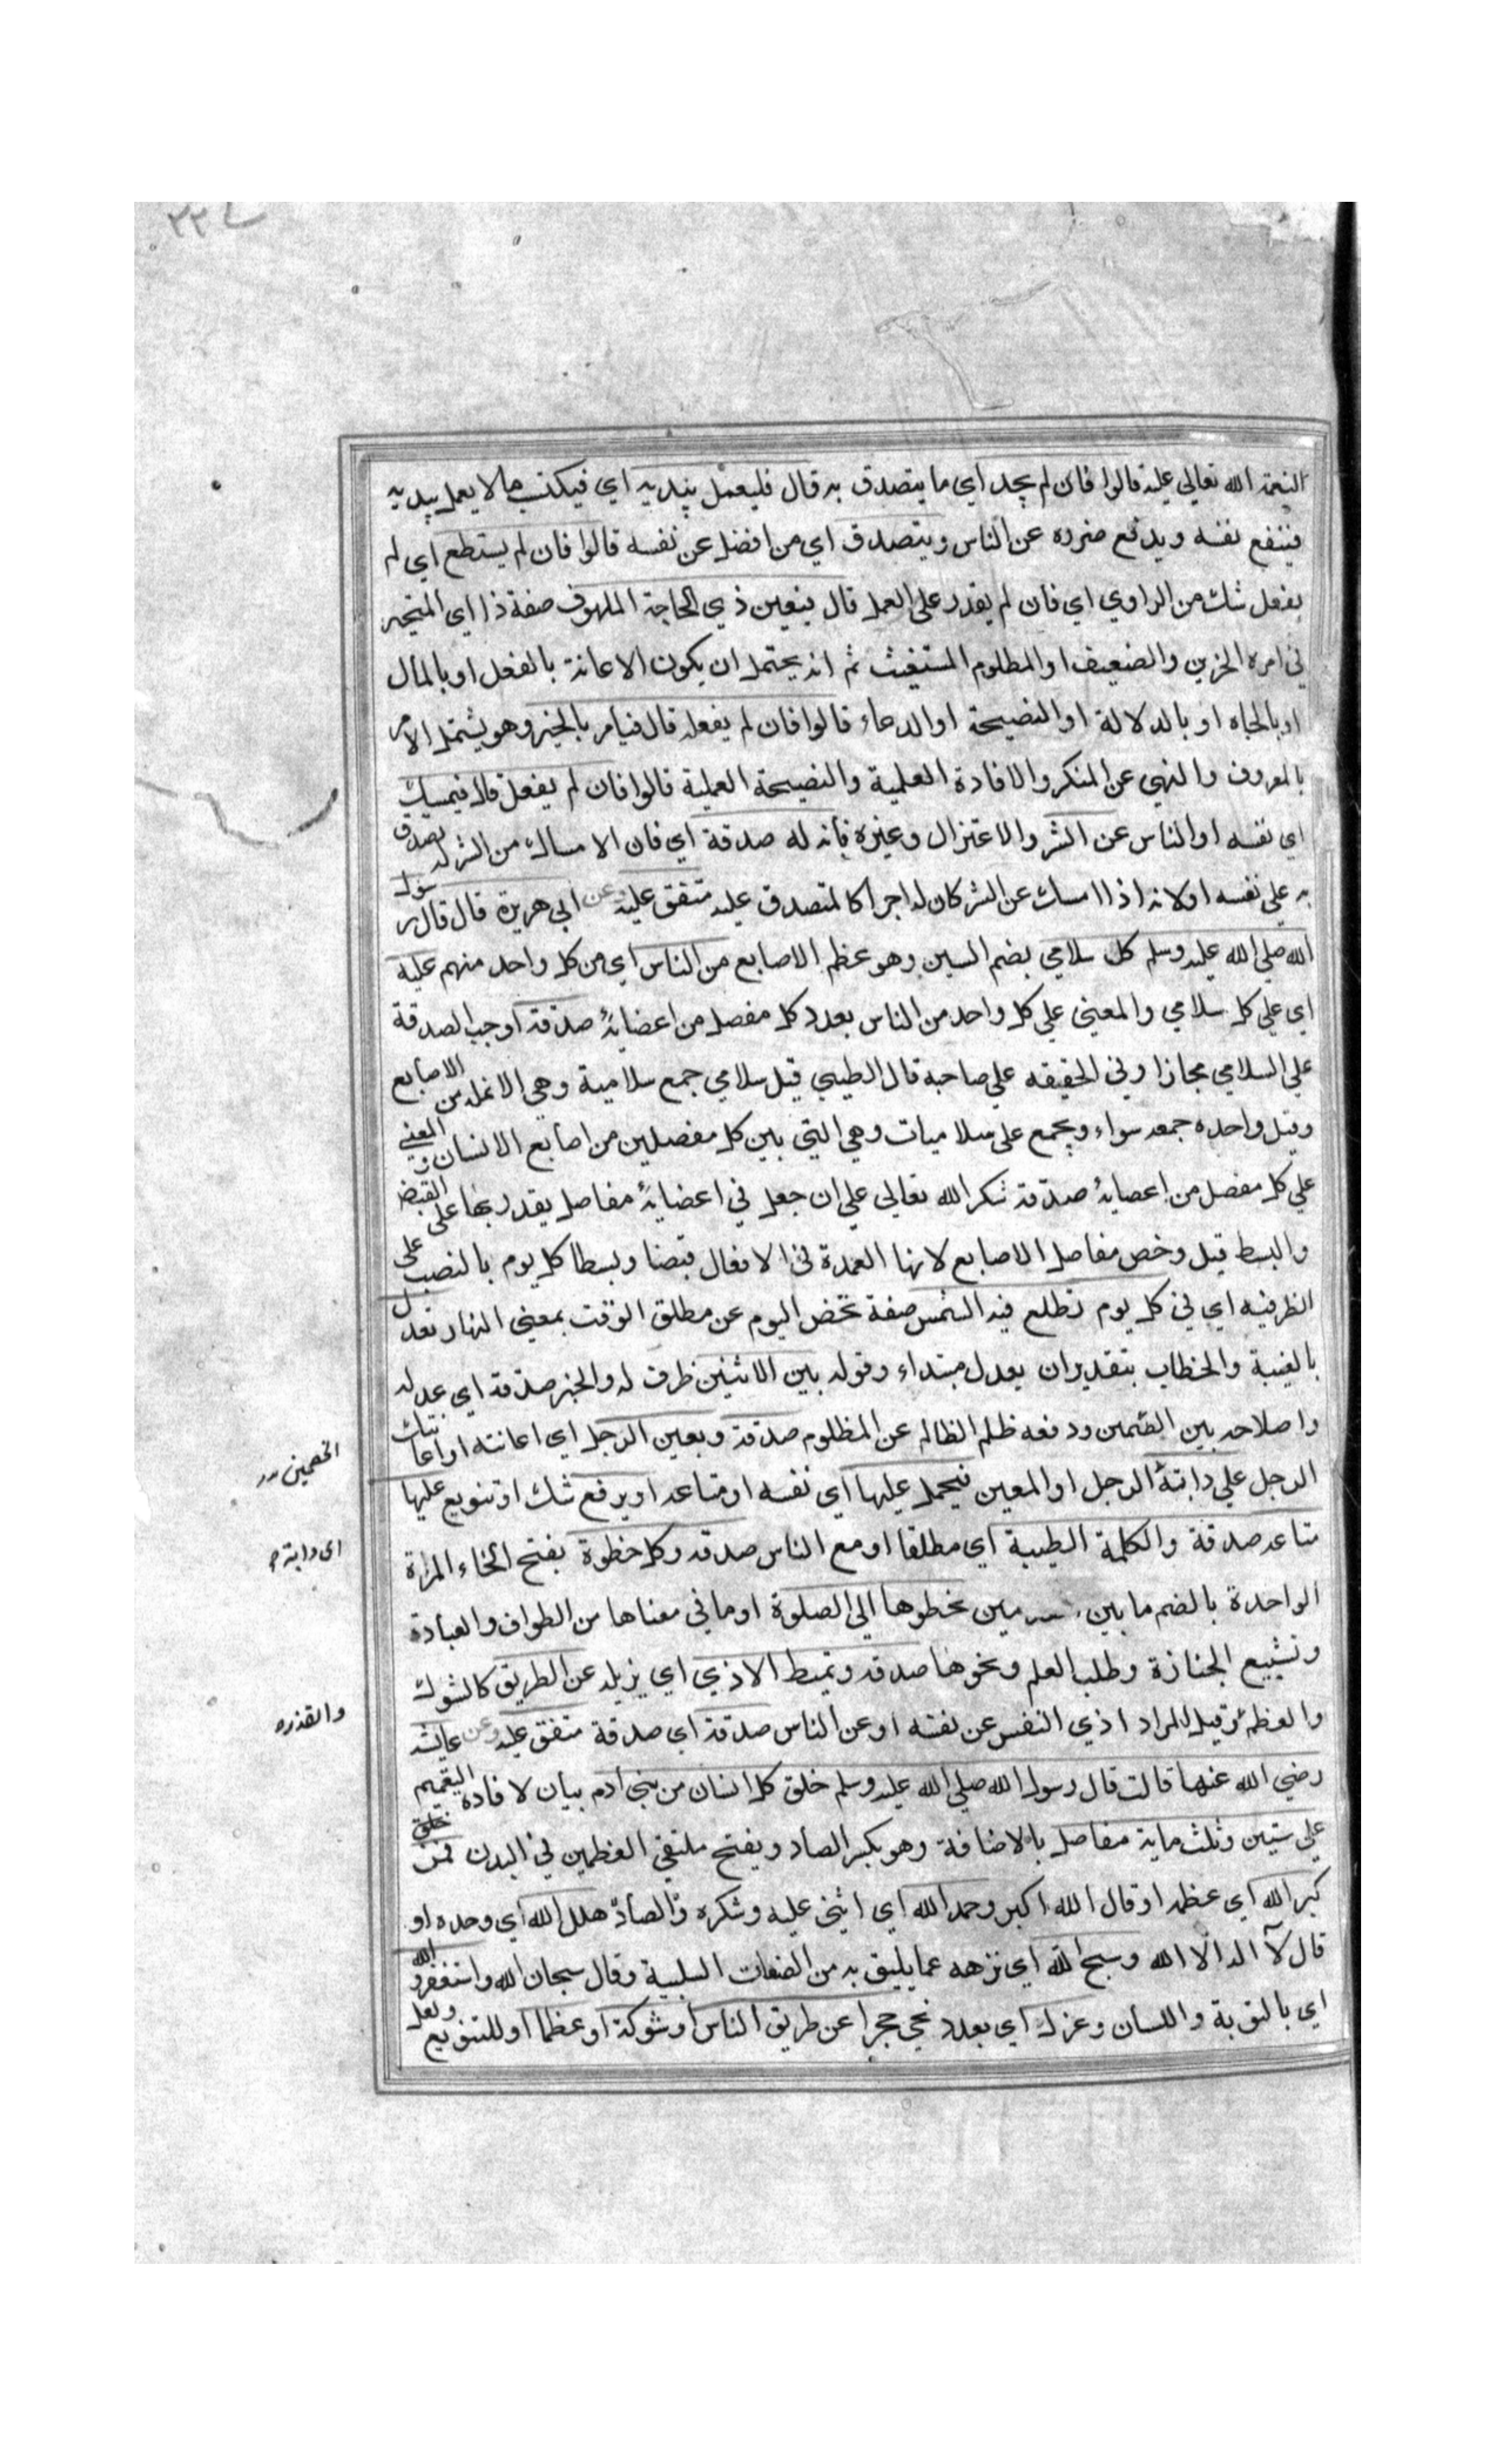 ٢٢٤
النعمة الله تعالى عليه قالوا فان لم يجد اي ما يتصدق به قال فليعمل بيديه اي فيكتسب مالا يعمل بيديه
فينتفع نفسه ويدفع ضرره عن الناس ويتصدق اي من افضل عن نفسه قالوا فان لم يستطع اي لم
يفعل شك من الراوي اي فان لم يقدر على العمل قال فيعين ذي الحاجة الملهوف صفة ذا اي المتحير
في امره الحزين والضعيف او المظلوم المستغيث ثم انه يحتمل ان يكون الاعانة بالفعل او بالمال
او بالجاه او بالدلالة او النصيحة او الدعاء قالوا فان لم يفعله قال فيامر بالخير وهو يشتمل الامر
بالمعروف والنهي عن المنكر والافادة العلمية والنصيحة العملية قالوا فان لم يفعل قال فيمسك
اي نفسه او الناس عن الشر والاعتزال وغيره فانه له صدقة اي فان الامساك من الشر له تصدق
به على نفسه او لانه اذا امسك عن الشر كان له اجرا كالمتصدق عليه متفق عليه عن ابي هريرة قال قال رسول
الله صلى الله عليه وسلم كل سلامي بضم السين وهو عظم الاصابع من الناس اي من كل واحد منهم عليه
اي على كل سلامي والمعنى على كل واحد من الناس بعدد كل مفصل من اعضائه صدقة اوجب الصدقة
على السلامي مجازا وفي الحقيقه على صاحبه قال الطيبي قيل سلامي جمع سلامية وهي الانملة من الاصابع
وقيل واحده جمعه سواء ويجمع على سلاميات وهي التي بين كل مفصلين من اصابع الانسان والمعنى
على كل مفصل من اعضائه صدقة شكر الله تعالى على ان جعل في اعضائه مفاصل يقدر بها على القبض
والبسط قيل وخص مفاصل الاصابع لانها العمدة في الافعال قبضا وبسطا كل يوم بالنصب على
الظرفيه اي في كل يوم تطلع فيه الشمس صفة تخص اليوم عن مطلق الوقت بمعنى النهار تعدل
بالغيبة والخطاب بتقدير ان يعدل مبتداء وقوله بين الاثنين ظرف له والخبر صدقة اي عدله
واصلاحه بين الضمين ودفعه ظلم الظالم عن المظلوم صدقة ويعين الرجل اي اعانته او اعانتك
الخصمين
الرجل على دابته الرجل او المعين فيحمل عليها اي نفسه او متاعه او يرفع شك او تنويع عليها
متاعه صدقة والكلمة الطيبة اي مطلقا او مع الناس صدقه وكل خطوة بفتح الخاء المراة
اى دابته
الواحدة بالضم ما بين مين يخطوها الى الصلوة او ما في معناها من الطواف والعبادة
وتشييع الجنازة وطلب العلم ونحوها صدقه ويميط الاذي اي يزيله عن الطريق كالشوك
والعظم وقيل المراد اذي النفس عن نفسه او عن الناس صدقة اي صدقة متفق عليه وعن عايشه
والقذره
رضي الله عنها قالت قال رسول الله صلى الله عليه وسلم خلق كل انسان من بني ادم بيان لافادة التعميم
على ستين وثلث ماية مفاصل بالاضافة وهو بكسر الصاد ويفتح ملتقي العظمين في البدن فمن خلق
كبر الله اي عظمه او قال الله اكبر وحمد الله اي اثنى عليه وشكره هلل الله اي وحده او
قال لآ اله الا الله وسبح الله اي نزهه عما يليق به من الصفات السلبية وقال سبحان الله واستغفر الله
اي بالتوبة واللسان وعزل اي بعدد نحي حجرا عن طريق الناس او شوكة او عظما او للتنويع